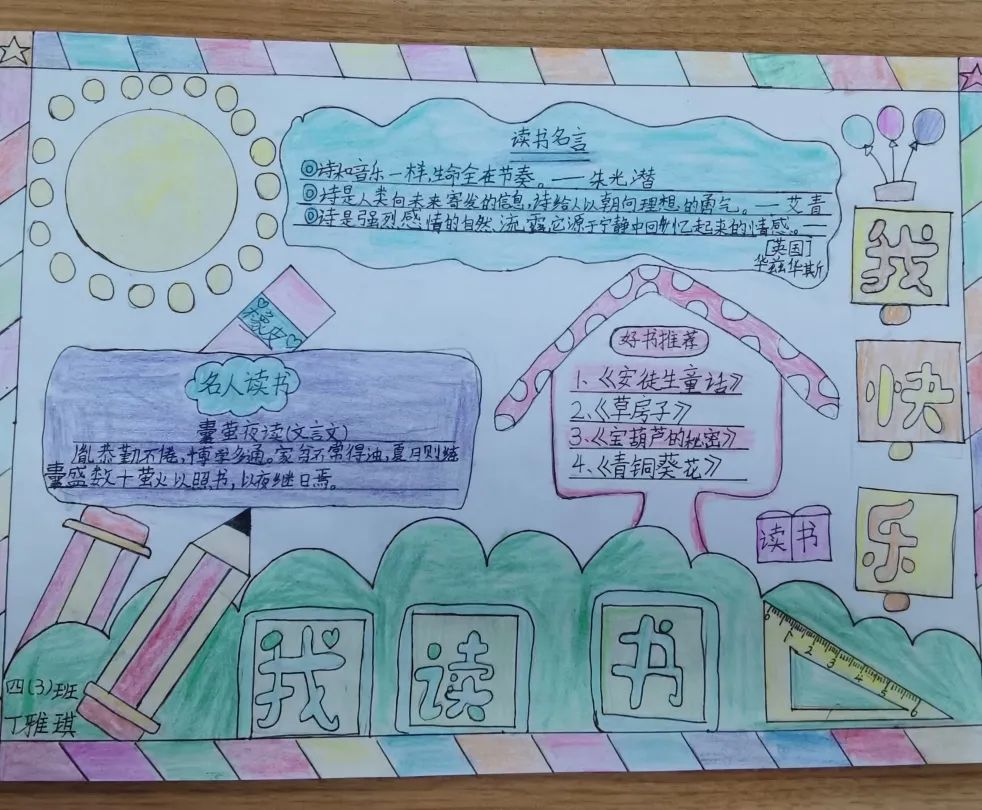 读书名言
◎诗和音乐一样,生命全在节奏。——朱光潜
◎诗是人类向未来寄发的信息,诗给人以朝向理想的勇气。—艾青
◎诗是强烈感情的自然流露,它源于宁静中回忆起来的情感。——
[英国]
华兹华斯
橡皮
名人读书
囊萤夜读(文言文)
胤恭勤不倦,博学多通。家贫不常得油,夏月则练
囊盛数十萤火以照书,以夜继日焉。
好书推荐
1、《安徒生童话》
2、《草房子》
3、《宝葫芦的秘密》
4、《青铜葵花》
读书
我
快
乐
我
读
书
0 1 2 3 4 5 6
四(3)班
丁雅琪